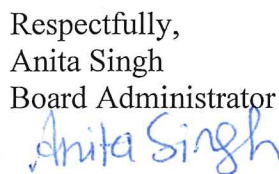 Respectfully,
Anita Singh
Board Administrator
Anita Singh